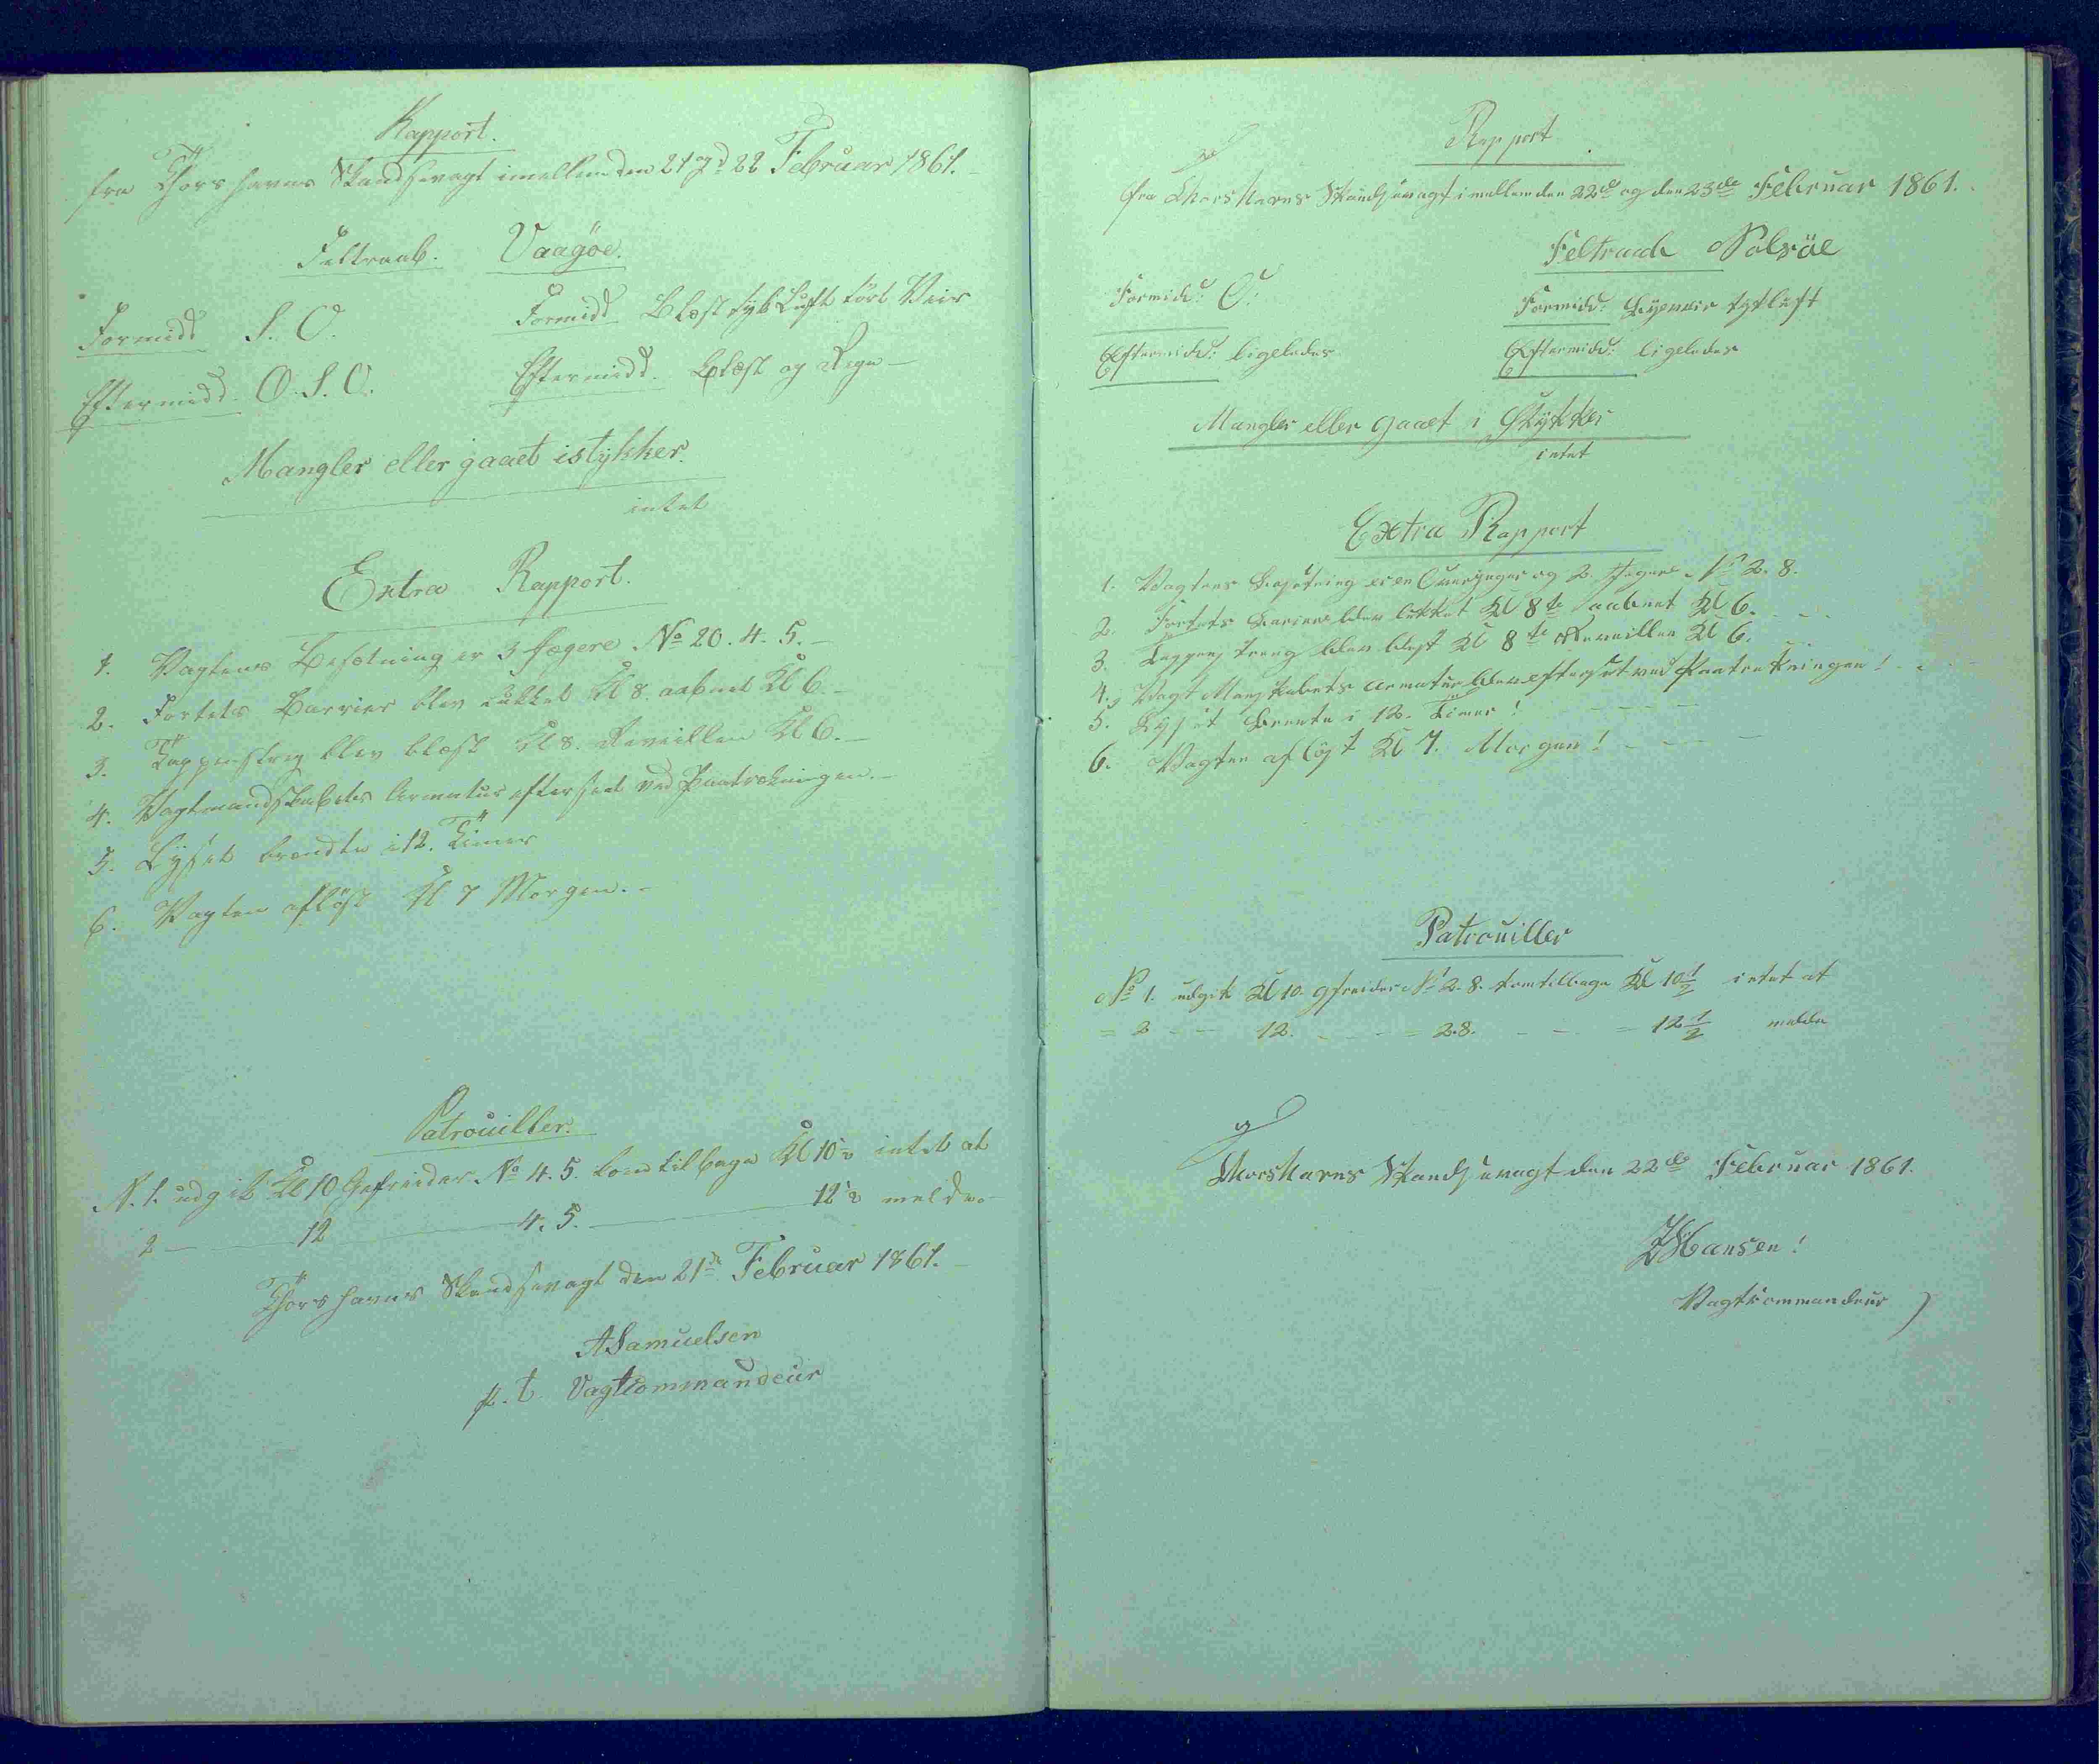 Rapport.
fra Thorshavns Skandsevagt imellem den 21 og 22 Februar 1861.
Feltraab. Vaagöe.
Formidd S. O. Formidd Blæst tyk Luft tört Veir
Eftermidd. O. S. O. Eftermidd. Blæst og Regn
Mangler eller gaaet istykker.
intet
Extra Rapport.
1. Vagtens Besætning er 3 Jægere No 20. 4. 5.
2. Fortets Barrier blev lukket Kl 8. aabnet Kl 6.
3. Tappenstreg blev blæst Kl 8. Reveillen Kl 6.
4. Vagtmandskabets Armatur efterseet ved Paatrækningen.
5. Lyset brændte i 12. Timer
6. Vagten aflöst Kl 7 Morgen.
Patrouiller.
N. 1. udgik Kl 10 Gefreider No 4. 5. kom tilbage Kl 10½ intet at
2 — 12 — 4. 5. — 12½ melde.
Thorshavns Skandsevagt den 21de Februar 1861.
ASamuelsen
p. t. Vagtcommandeur
Rapport
fra Thorshavns Skandsevagt imellem den 22de og den 23de Februar 1861.
Feltraab Nolsöe
Formidd: O: Formidd: Lyeveir tykluft
Eftermidd: ligeledes Eftermidd: ligeledes
Mangler eller gaaet i Stykker
intet
Extra Rapport
1. Vagtens Besætning er en Overjæger og 2. Jægere No 2. 8.
2. Fortets Bariere blev lukket Kl 8te aabnet Kl 6.
3. Tappenstreng blev blæst Kl 8te Reveillen Kl 6.
4. Vagt Manskabets Armatur blev efterset ved Paatrækningen!
5. Lyset brente i 12. Timer!
6. Vagten aflöst Kl 7. Morgen!
Patrouiller
No 1. udgik Kl 10. gfreider No 2. 8. kom tilbage Kl 10½ intet at
= 2 - - 12. - - - = 2.8. - - = 12½ melde
Thorshavns Skandsevagt den 22de Februar 1861.
JHansen!
Vagtkommandeur